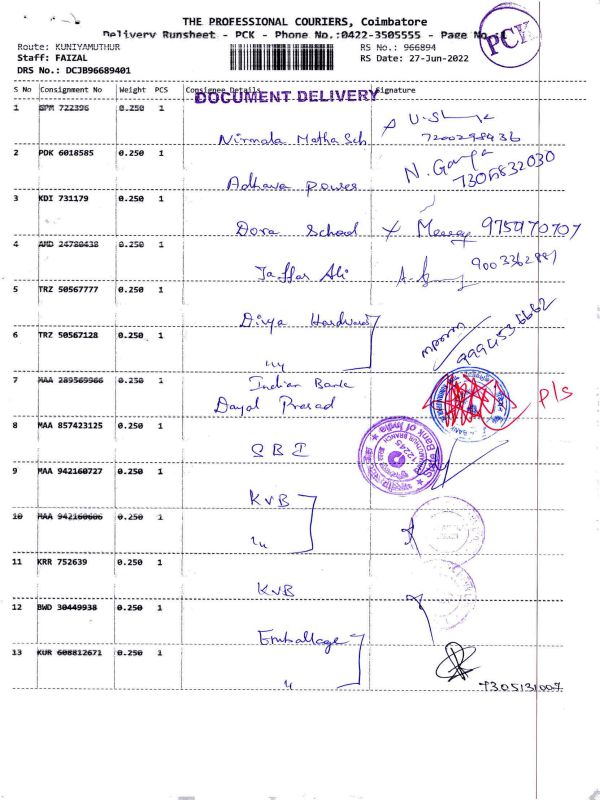 THE PROFESSIONAL COURIERS, Coimbatore
Delivery Runsheet - PCK - Phone No.:0422-3505555 - Page No.
PCK
Route: KUNIYAMUTHUR
RS No.: 966894
Staff: FAIZAL
RS Date: 27-Jun-2022
DRS No.: DCJB96689401
S No Consignment No Weight PCS Consignee Details Signature
DOCUMENT DELIVERY
1 BPM 722396 0.250 1
Nirmala Matha Sch
7200298436
2 PDK 6018585 0.250 1
Adhava power
7305832030
3 KDI 731179 0.250 1
Dora School
975970707
4 AMD 24780438 0.250 1
Jaffar Ali
5 TRZ 50567777 0.250 1
Divya Hardware
6 TRZ 50567128 0.250 1
7 MAA 289569966 0.250 1
Indian Bank
Dayal Prasad
Pls
8 MAA 857423125 0.250 1
SBI
State Bank of India
12245
BRANCH
9 MAA 942160727 0.250 1
KVB
10 MAA 942160606 0.250 1
11 KRR 752639 0.250 1
KVB
12 BWD 30449938 0.250 1
Emballage
13 KUR 608812671 0.250 1
7305131007